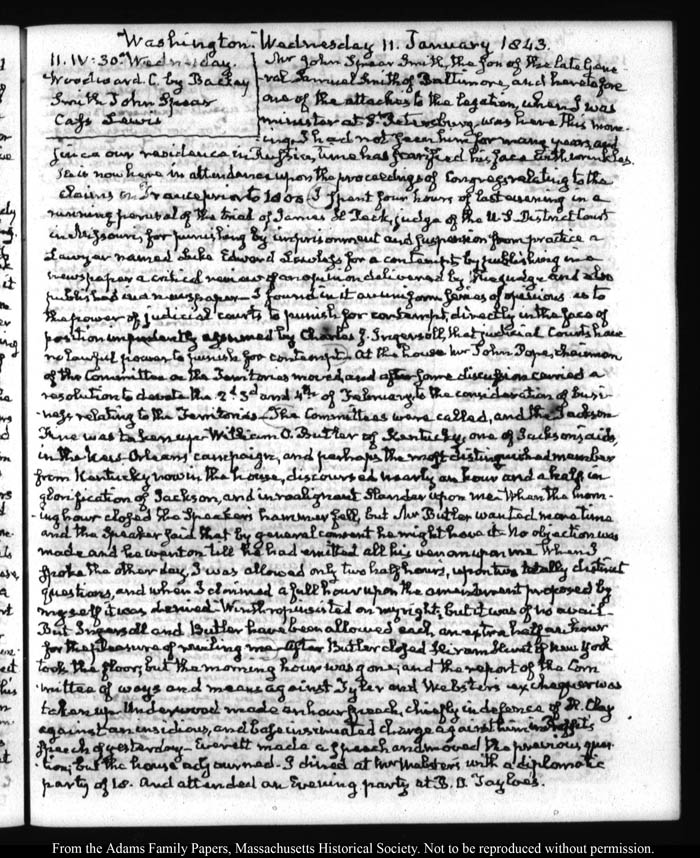 Washington. Wednesday 11. January 1843.
11. IV:30. Wednesday.
Woodward C. by Barkley
Smith John Spear
Cass Lewis
Mr John Spear Smith, the son of the late Gene-
ral Samuel Smith of Baltimore, and heretofore
one of the attachés to the Legation, when I was
minister at St. Petersburg, was here this morn-
ing. I had not seen him for many years, and
since our residence in Russia, time has scarified his face with wrinkles.
He is now here in attendance upon the proceedings of Congress relating to the
claims on France prior to 1800. I spent four hours of last evening in a
running perusal of the trial of James H. Peck, judge of the U.S. District Court
in Missouri, for punishing by imprisonment and suspension from practice a
Lawyer named Luke Edward Lawless for a contempt by publishing in a
newspaper a critical review of an opinion delivered by the judge and also
published in a newspaper— I found in it an uniform series of opinions as to
the power of judicial courts to punish for contempt, directly in the face of
position impudently assumed by Charles J. Ingersoll, that judicial Courts have
no lawful power to punish for contempt. At the house Mr John Pope, chairman
of the Committee on the Territories moved, and after some discussion carried a
resolution to devote the 2d 3d and 4th of February, to the consideration of busi-
ness relating to the Territories— The Committees were called, and the Jackson
Fine was taken up— William O. Butler of Kentucky, one of Jackson's aids,
in the New Orleans campaign, and perhaps the most distinguished member
from Kentucky now in the house, discoursed nearly an hour and a half in
glorification of Jackson, and in malignant slander upon me— When the morn-
ing hour closed the Speaker's hammer fell, but Mr Butler wanted more time
and the Speaker said that by general consent he might have it— No objection was
made and he went on till he had emitted all his venom upon me. When I
spoke the other day, I was allowed only two half hours, upon two totally distinct
questions, and when I claimed a full hour upon the amendment proposed by
myself it was denied. Winthrop insisted on my right; but it was of no avail—
But Ingersoll and Butler have been allowed each, an extra half an hour
for the pleasure of reviling me— After Butler closed Hiram Hunt of New York
took the floor, but the morning hour was gone; and the report of the Com-
mittee of ways and means against Tyler and Webster's exchequer was
taken up— Underwood made an hour speech, chiefly in defence of H. Clay
against an insidious, and base insinuated charge against him in
speech of yesterday— Everett made a speech and moved the previous ques-
tion; but the house adjourned. I dined at Mr Webster's with a diplomatic
party of 18. And attended an Evening party at B. O Tayloe's.
From the Adams Family Papers, Massachusetts Historical Society. Not to be reproduced without permission.